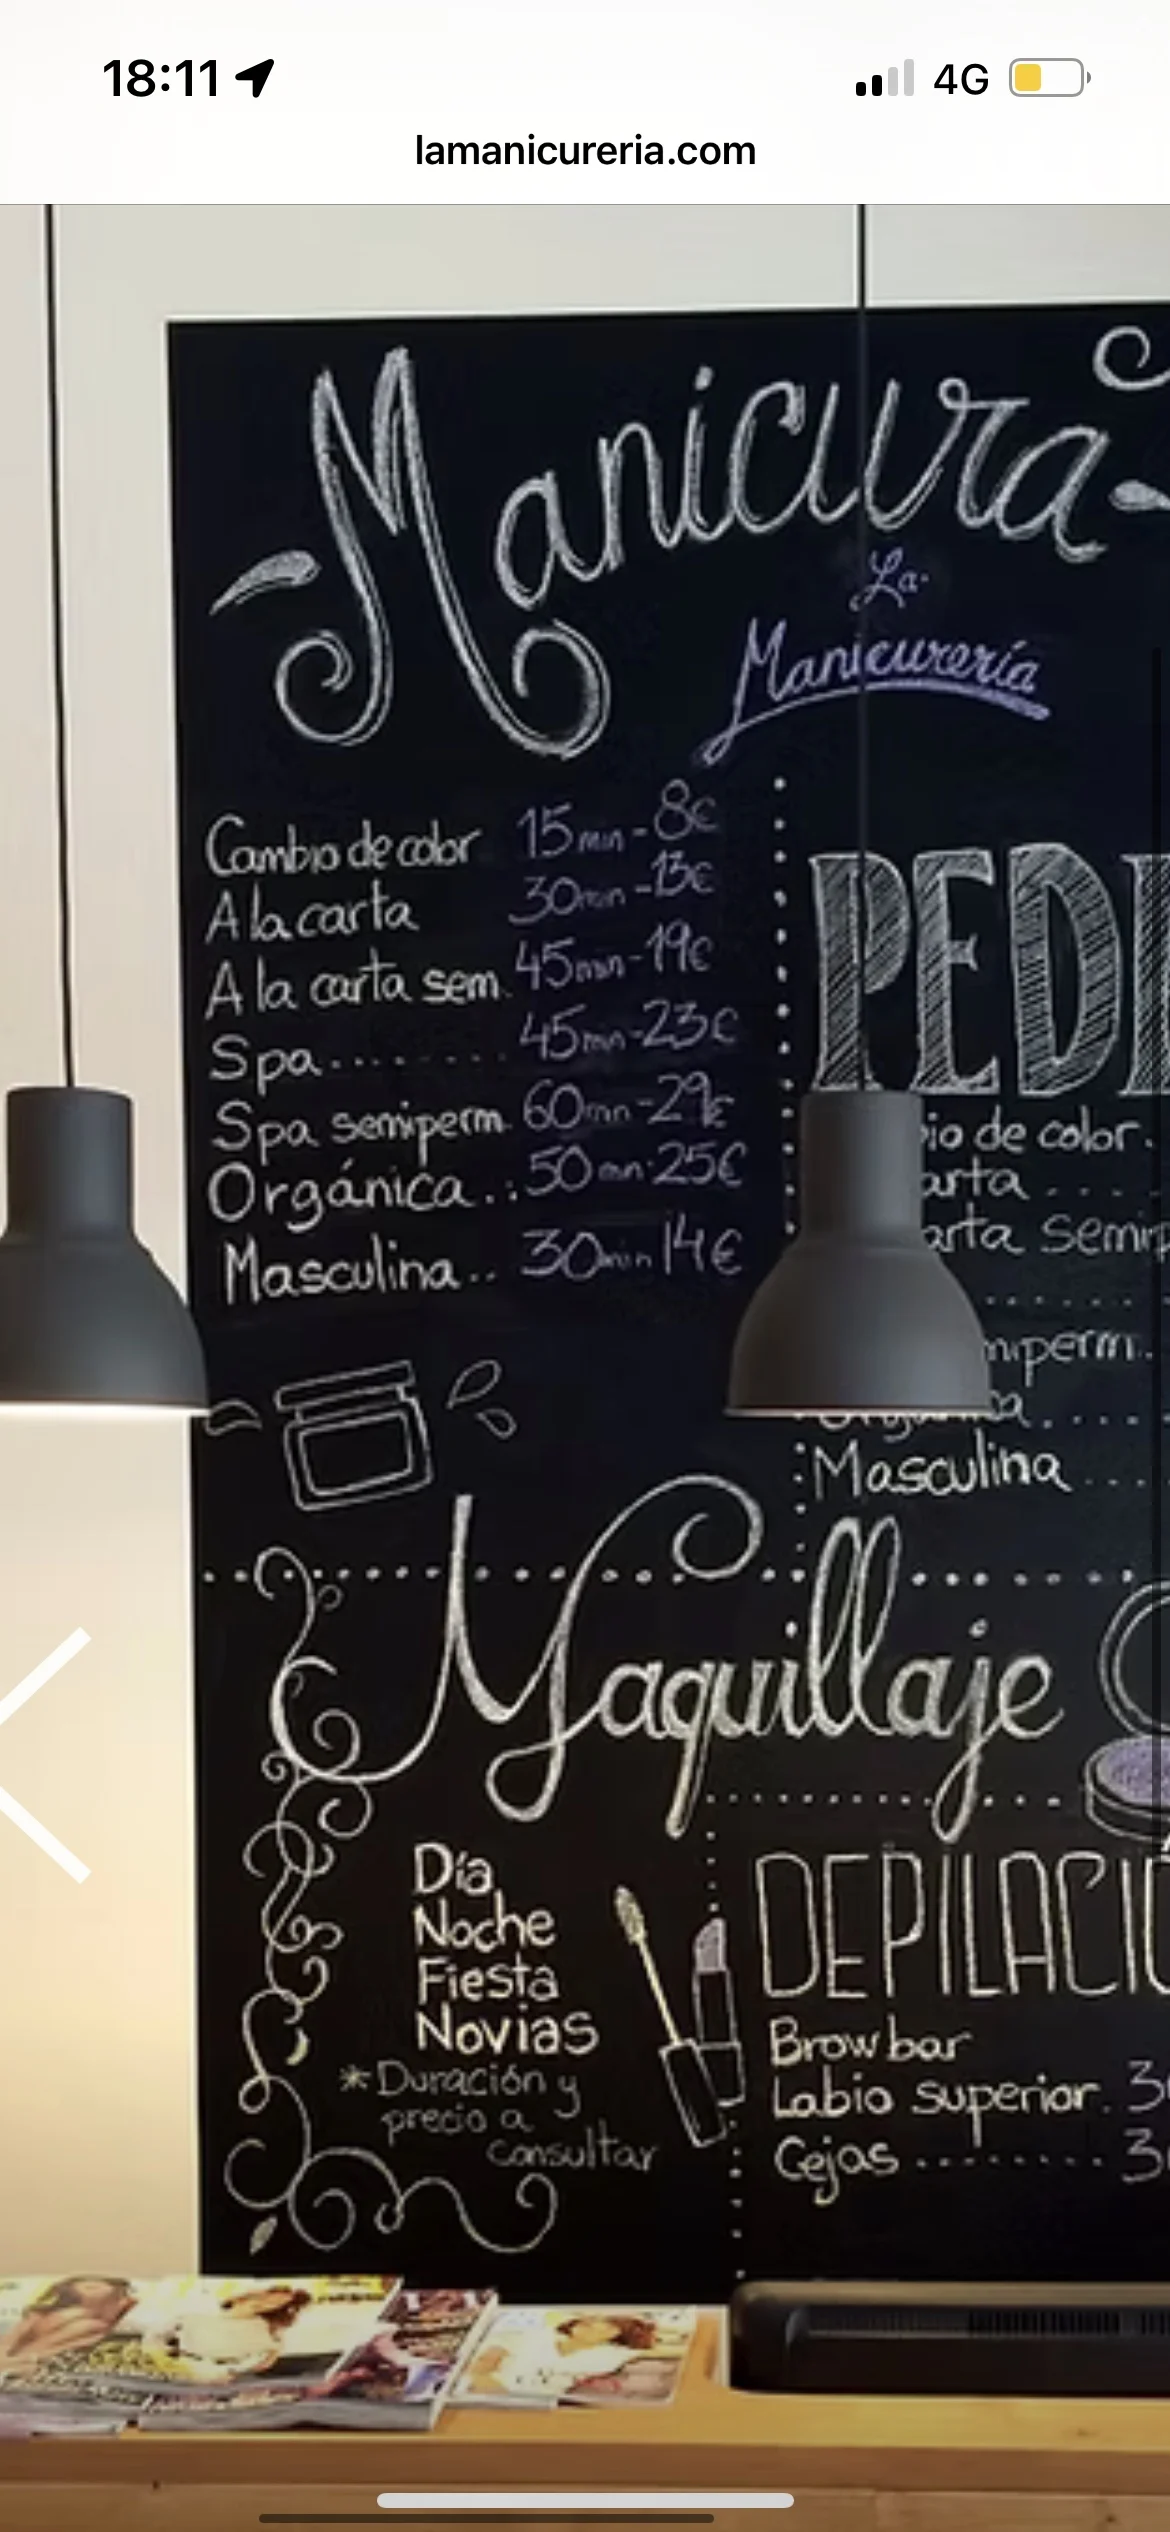 18:11
4G
lamanicureria.com
Manicura
La
Manicurería
Cambio de color 15min - 8€
A la carta 30min - 13€
A la carta sem. 45min - 19€
Spa........ 45min - 23€
Spa semiperm. 60min - 29€
Orgánica..: 50min - 25€
Masculina.. 30min 14€
PEDI
io de color.
arta....
arta Semip
......
miperm..
Orgánica....
Masculina...
Maquillaje
Día
Noche
Fiesta
Novias
*Duración y
precio a
consultar
DEPILACIÓ
Brow bar
Labio superior. 3
Cejas........ 3